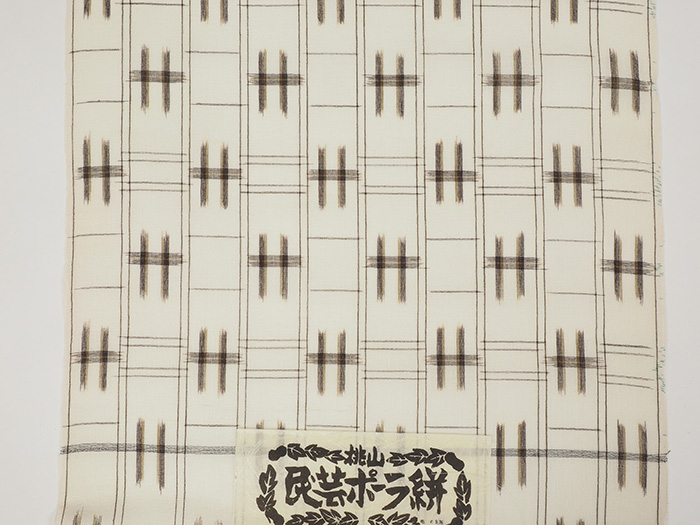 桃山
民芸ポーラ絣